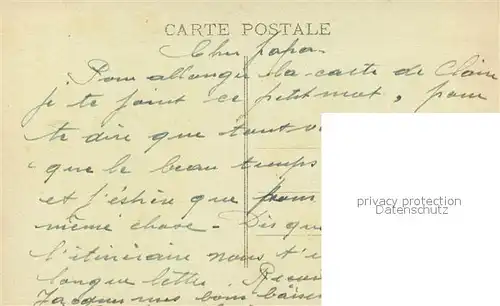 CARTE POSTALE
Cher papa
Pour allonger la carte de Claire
je te joint ce petit mot, pour
te dire que tout v
que le beau temps
et j'éspère que pour
même chose - Dis que
l'itinéraire nous t'é
longue lettre.
bons baisers
privacy protection
Datenschutz